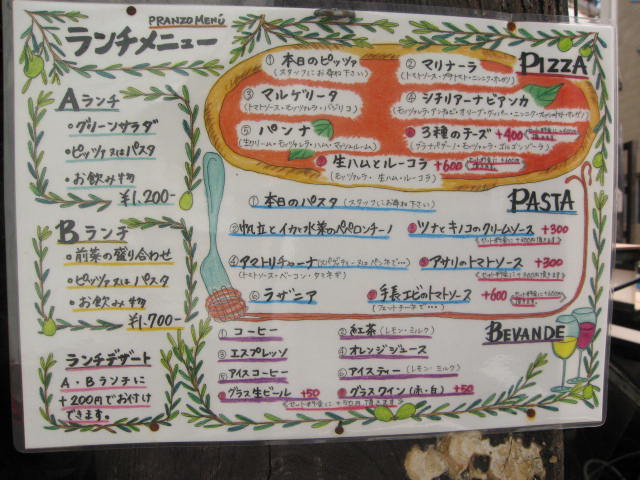 PRANZO MENÚ
ランチメニュー
Aランチ
・グリーンサラダ
・ピッツァ又はパスタ
・お飲み物
¥1.200-
Bランチ
・前菜の盛り合わせ
・ピッツァ又はパスタ
・お飲み物
¥1.700-
ランチデザート
A・Bランチに
+200円でお付け
できます。
PIZZA
① 本日のピッツァ
(スタッフにお尋ね下さい)
② マリナーラ
③ マルゲリータ
(トマトソース・モッツァレラ・バジリコ)
④ シチリアーナビアンカ
⑤ パンナ
(生クリーム・モッツァレラ・ハム・マッシュルーム)
⑥ 3種のチーズ +400
(グラナパダーノ・モッツァレラ・ゴルゴンゾーラ)
⑦ 生ハムとルーコラ +600
(モッツァレラ・生ハム・ルーコラ)
PASTA
① 本日のパスタ (スタッフにお尋ね下さい)
② 帆立とイカと水菜のペペロンチーノ
③ ツナとキノコのクリームソース +300
④ アマトリチャーナ
(トマトソース・ベーコン・タマネギ)
⑤ アサリのトマトソース +300
⑥ ラザニア
⑦ 手長エビのトマトソース +600
(フェットチーネで…)
BEVANDE
① コーヒー
② 紅茶 (レモン・ミルク)
③ エスプレッソ
④ オレンジジュース
⑤ アイスコーヒー
⑥ アイスティー (レモン・ミルク)
⑦ グラス生ビール +50
⑧ グラスワイン (赤・白) +50
(セット料金に+50円頂きます)